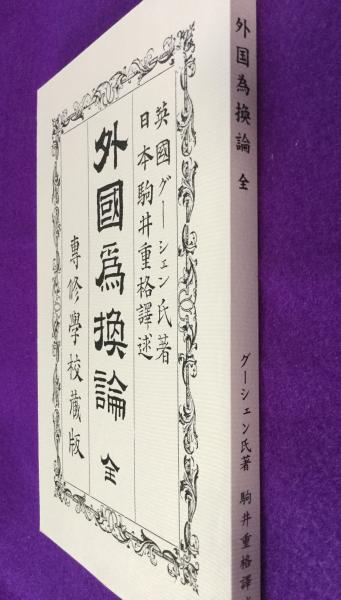 英國グーシェン氏著
日本駒井重格譯述
外國爲換論 全
專修學校藏版
外国為換論 全
グーシェン氏著 駒井重格譯